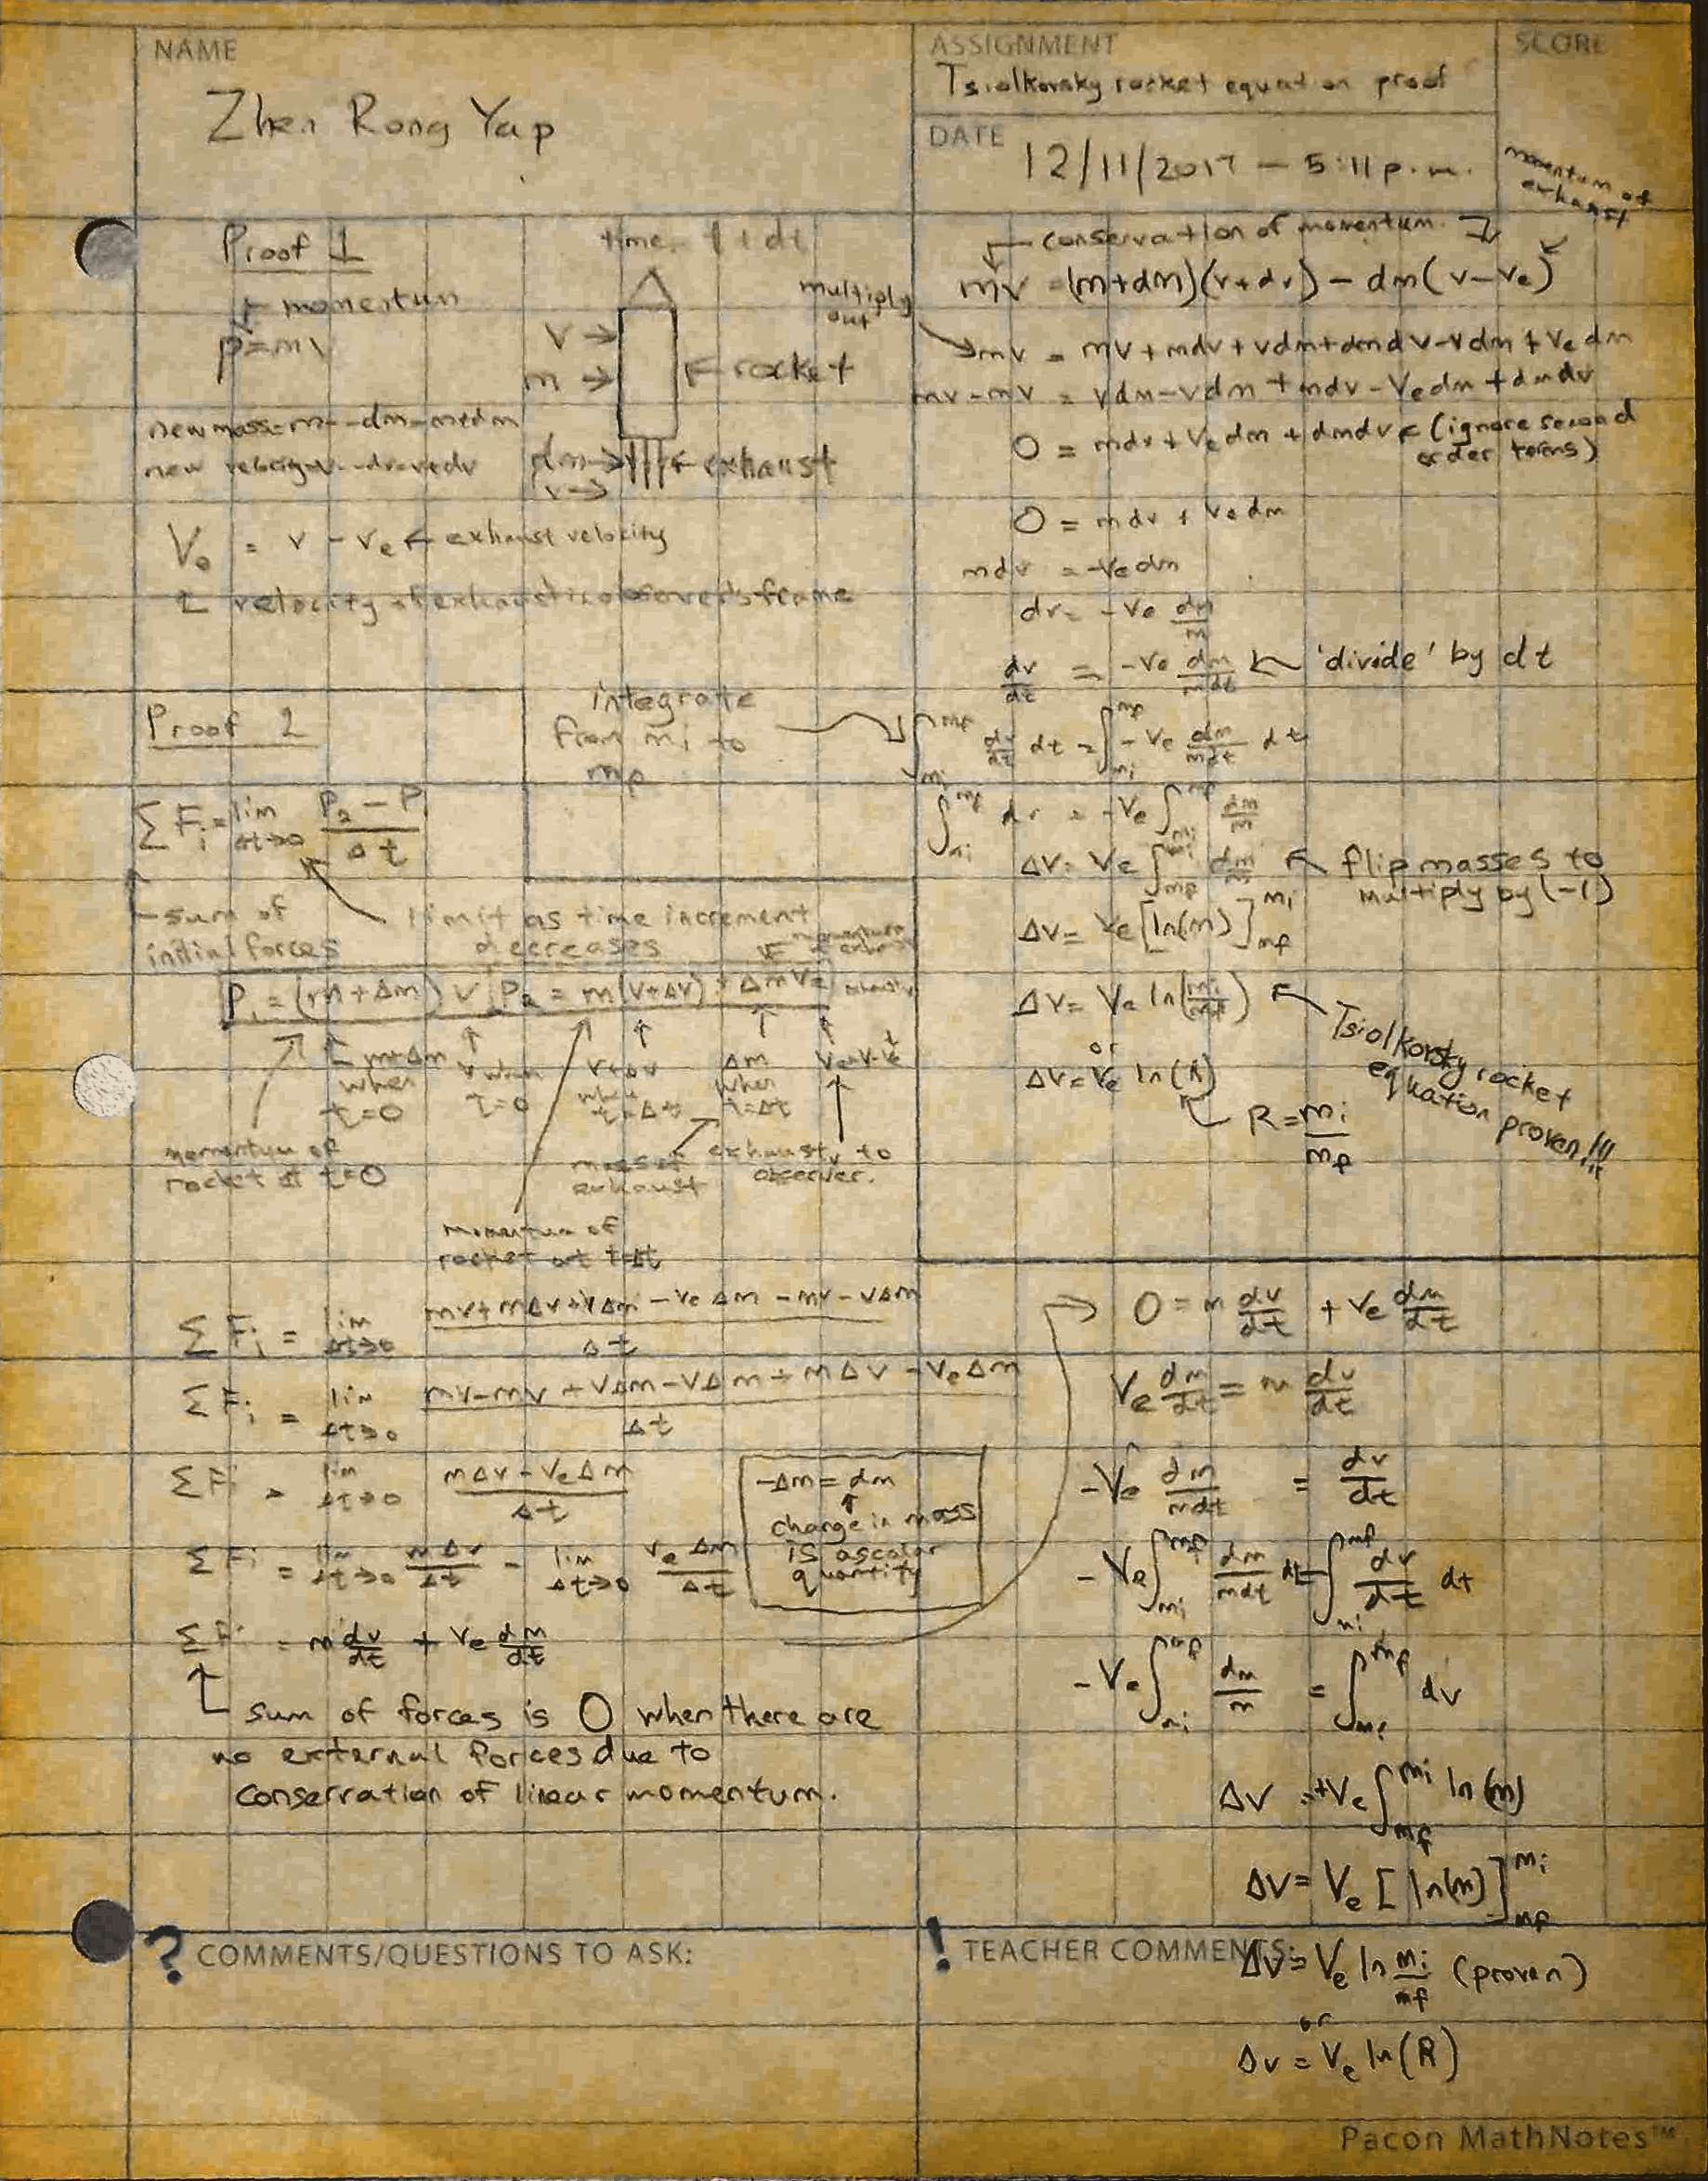 NAME
Zhen Rong Yap
ASSIGNMENT
Tsiolkovsky rocket equation proof
SCORE
DATE
12/11/2017 — 5:11 p.m.
Proof 1
← momentum
p=mv
new mass=m--dm=m+dm
new velocity=v--dv=v+dv
V₀ = v - Vₑ ← exhaust velocity
velocity of exhaust in observer's frame
time = t + dt
v →
m →
← rocket
dm →
v →
← exhaust
momentum of
exhaust
← conservation of momentum.
mv = (m+dm)(v+dv) - dm(v-vₑ)
multiply
out
mv = mv + mdv + vdm + dmdv - vdm + Vₑdm
mv - mv = vdm - vdm + mdv - Vₑdm + dmdv
0 = mdv + Vₑdm + dmdv ← (ignore second
order terms)
0 = mdv + Vₑdm
mdv = -Vₑdm
dv = -Vₑ dm/m
dv/dt = -Vₑ dm/mdt ← 'divide' by dt
integrate
from mᵢ to
m_f
∫_mᵢ^m_f dv/dt dt = ∫_mᵢ^m_f -Vₑ dm/mdt dt
∫_mᵢ^m_f dv = -Vₑ ∫_mᵢ^m_f dm/m
ΔV = Vₑ ∫_m_f^mᵢ dm/m ← flip masses to
multiply by (-1)
ΔV = Vₑ [ln(m)]_m_f^mᵢ
ΔV = Vₑ ln(mᵢ/m_f)
or
ΔV = Vₑ ln(R)
R = mᵢ/m_f
Tsiolkovsky rocket
equation proven!!!
Proof 2
ΣFᵢ = lim Δt→0 (P₂ - P₁)/Δt
sum of
initial forces
limit as time increment
decreases
momentum
of exhaust
P₁ = (m + Δm) V P₂ = m(V+ΔV) + ΔmVₑ
m+Δm
when
t=0
v when
t=0
v+Δv
when
t=Δt
Δm
when
t=Δt
Vₑ=V-Vₑ
momentum of
rocket at t=0
mass of
exhaust
exhaust v to
observer.
momentum of
rocket at t=Δt
ΣFᵢ = lim Δt→0 (mv + mΔv + vΔm - vₑΔm - mv - vΔm)/Δt
ΣFᵢ = lim Δt→0 (mv - mv + vΔm - vΔm + mΔv - vₑΔm)/Δt
ΣFᵢ = lim Δt→0 (mΔv - vₑΔm)/Δt
ΣFᵢ = lim Δt→0 mΔv/Δt - lim Δt→0 vₑΔm/Δt
-Δm = dm
change in mass
is a scalar
quantity
ΣFᵢ = m dv/dt + vₑ dm/dt
sum of forces is 0 when there are
no external forces due to
conserration of linear momentum.
0 = m dv/dt + vₑ dm/dt
Vₑ dm/dt = m dv/dt
-Vₑ dm/mdt = dv/dt
-Vₑ ∫_mᵢ^m_f dm/mdt dt = ∫_mᵢ^m_f dv/dt dt
-Vₑ ∫_mᵢ^m_f dm/m = ∫_mᵢ^m_f dv
ΔV = +Vₑ ∫_m_f^mᵢ ln(m)
ΔV = Vₑ [ln(m)]_m_f^mᵢ
ΔV = Vₑ ln mᵢ/m_f (proven)
or
ΔV = Vₑ ln(R)
? COMMENTS/QUESTIONS TO ASK:
! TEACHER COMMENTS:
Pacon MathNotes™